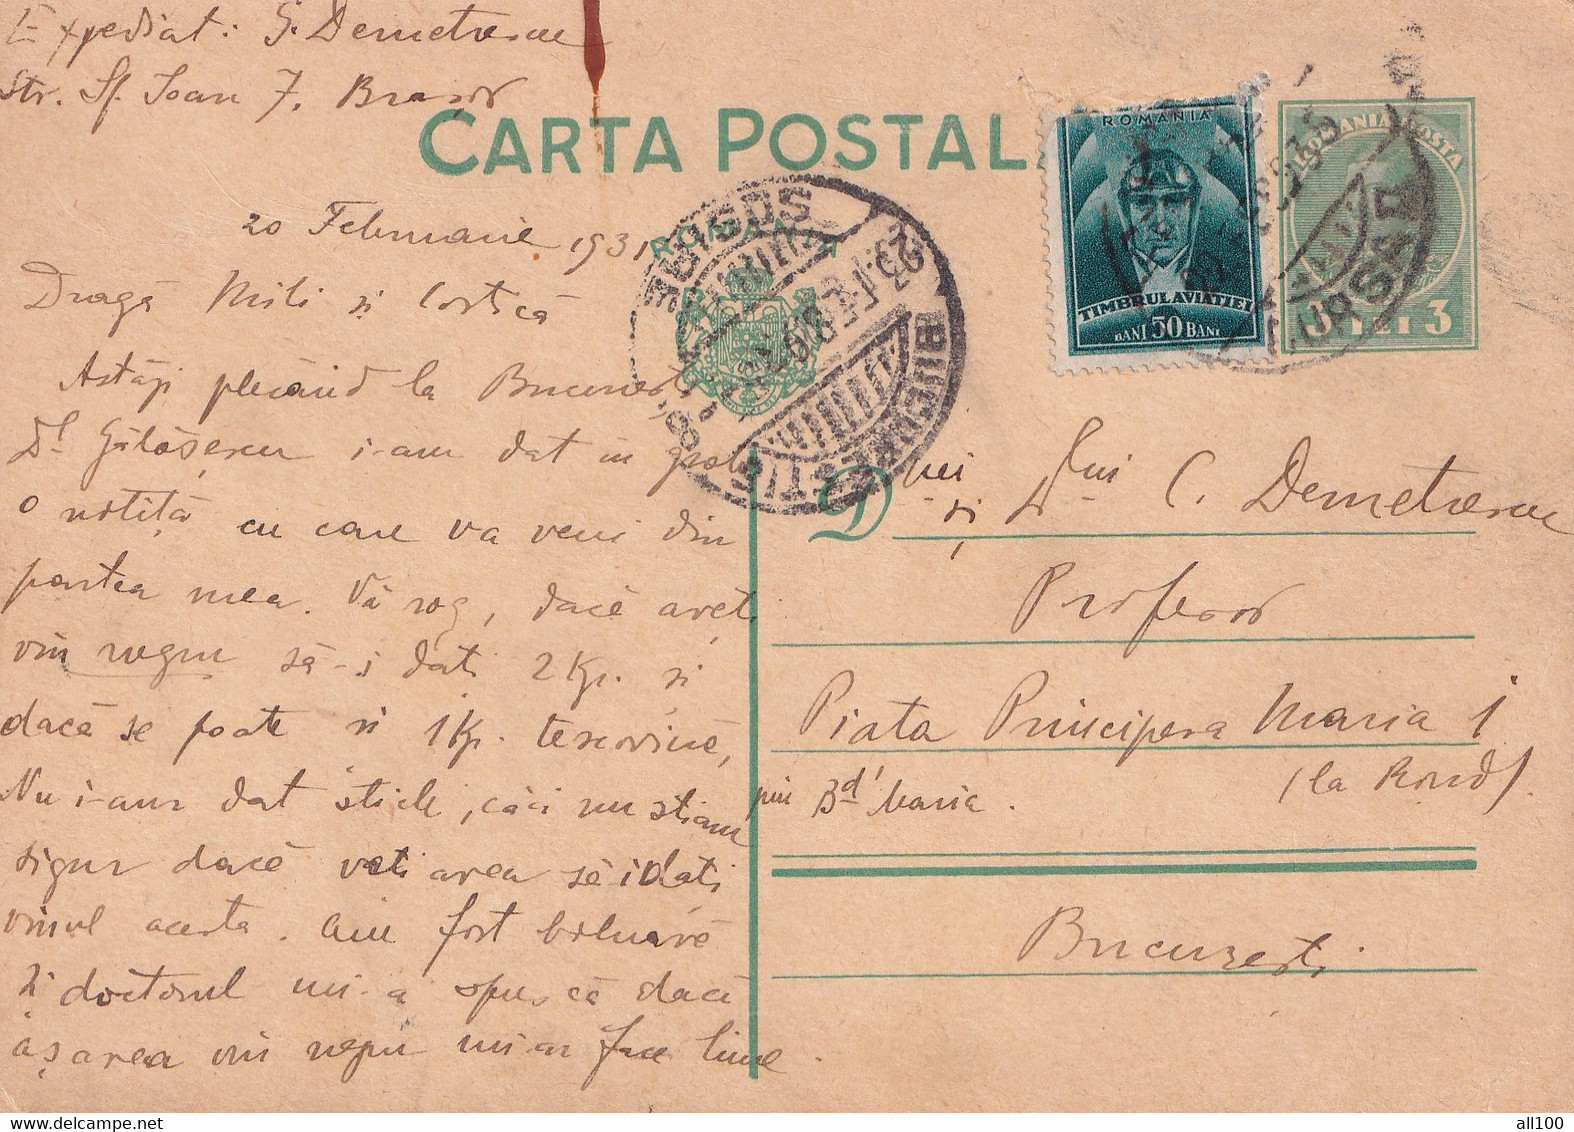 Expediat: G. Demetrescu
Str. Sf. Ioan 7, Brașov
CARTA POSTAL
ROMANIA
TIMBRUL AVIATIEI
BANI 50 BANI
ROMANIA POSTA
3 LEI 3
20 Februarie 1931
ROMANIA
Dragă Mili și Costică
Astăzi plecând la București
Dl Gălășescu i-am dat în
o notiță cu care va veni din
partea mea. Vă rog, dacă aveți
vin negru să-i dați 2 Kg. și
dacă se poate și 1 Kg. tescovină,
Nu i-am dat sticle, căci nu știam
sigur dacă veți avea să i dați
vinul acesta. Am fost bolnavă
și doctorul mi-a spus că dacă
aș avea vin negru mi-ar face bine.
BUCUREȘTI
Dnei
și Dlui C. Demetrescu
Profesor
Piata Principesa Maria 1
(la Rond)
prin Bd Maria.
București
all100